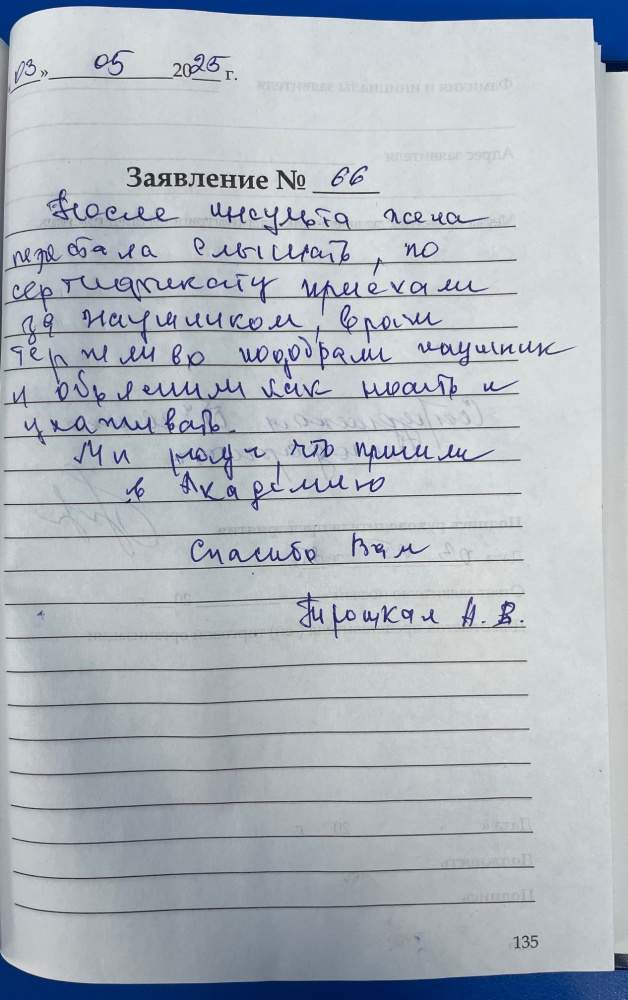 03» 05 2025 г.
Заявление № 66
После инсульта жена
перестала слышать, по
сертификату приехали
за наушником, врачи
терпеливо подобрали наушник
и объяснили как носить и
ухаживать.
Мы рады, что пришли
в Академию
Спасибо Вам
А. В.
135